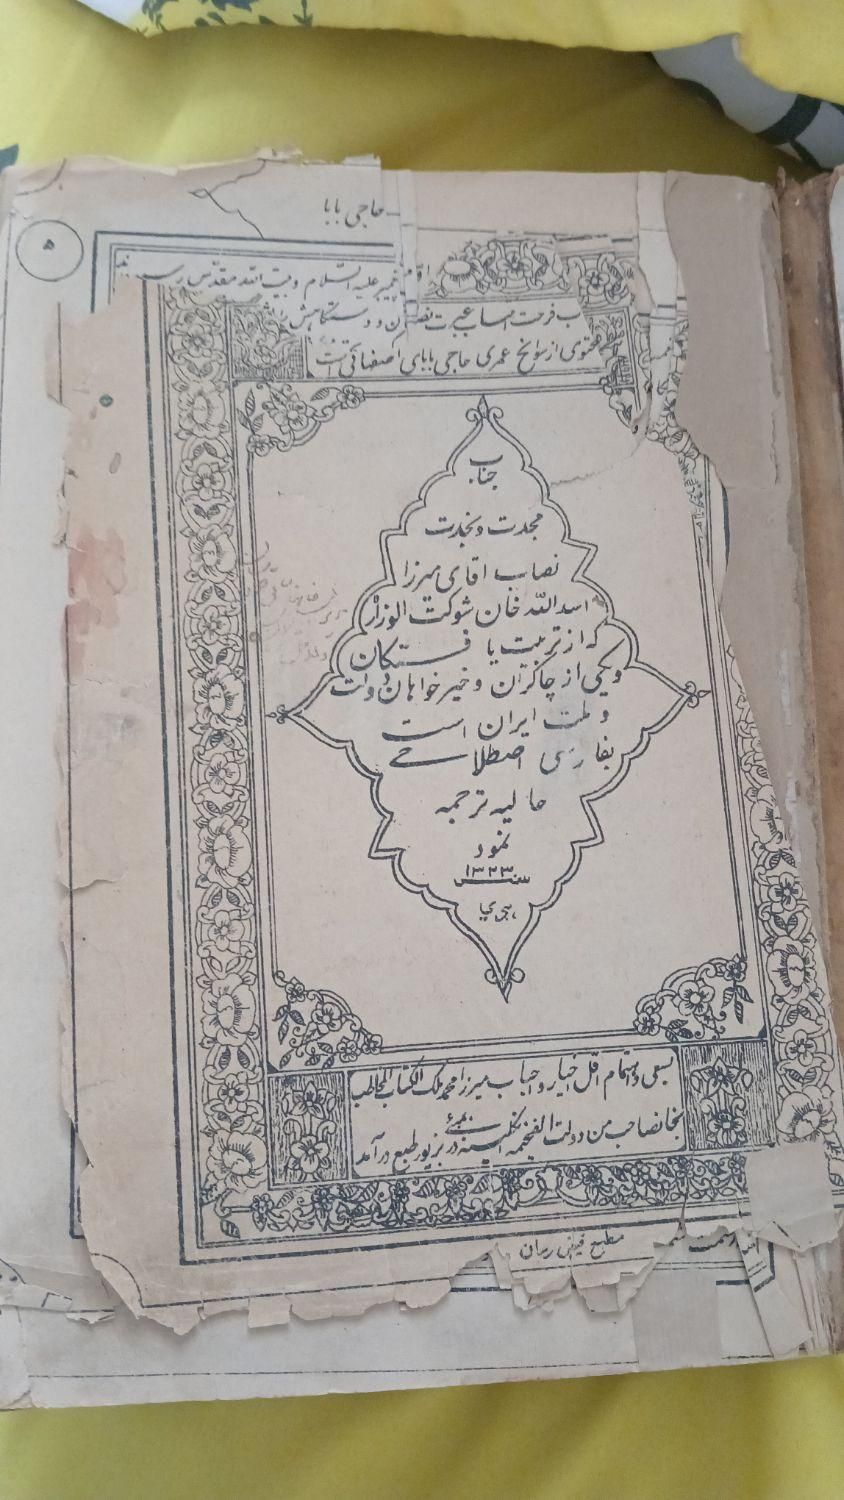 حاجی بابا
۵
علیه السلام و بیت الله مقدس
فرحت انتساب عبرت
محتوی از سوانح عمری حاجی بابای اصفهانی است
جناب
مجدت و نجدت
نصاب اقای میرزا
اسدالله خان شوکت الوزراء
که از تربیت یا فتگان
و یکی از چاکران و خیر خواهان دولت
و ملت ایران است
بفارسی اصطلاحی
حالیه ترجمه
نمود
سنه ۱۳۲۳
بسعی و اهتمام اقل اخیار و احباب میرزا محمد ملک الکتاب المخاطب
بخانصاحب من دولت الفخیمه انگلیسیه در بمبئی بزیور طبع در آمد
مطبع فیض رسان